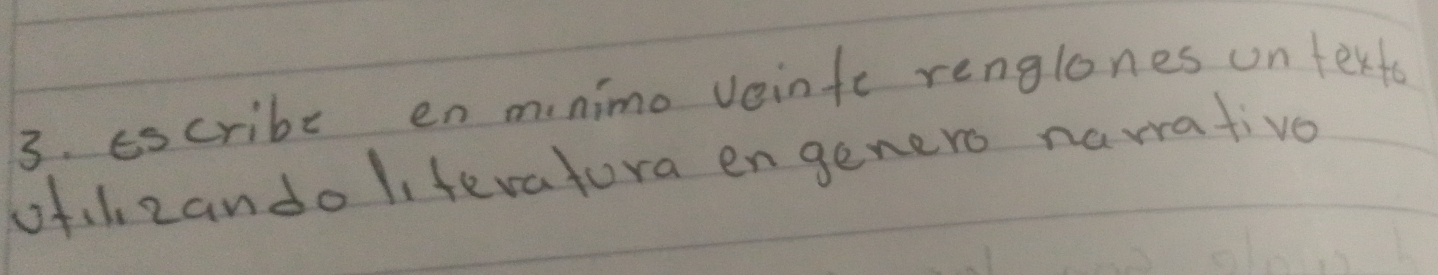 3. Escribe en minimo veinte renglones un texto
utilizando literatura en genero narrativo